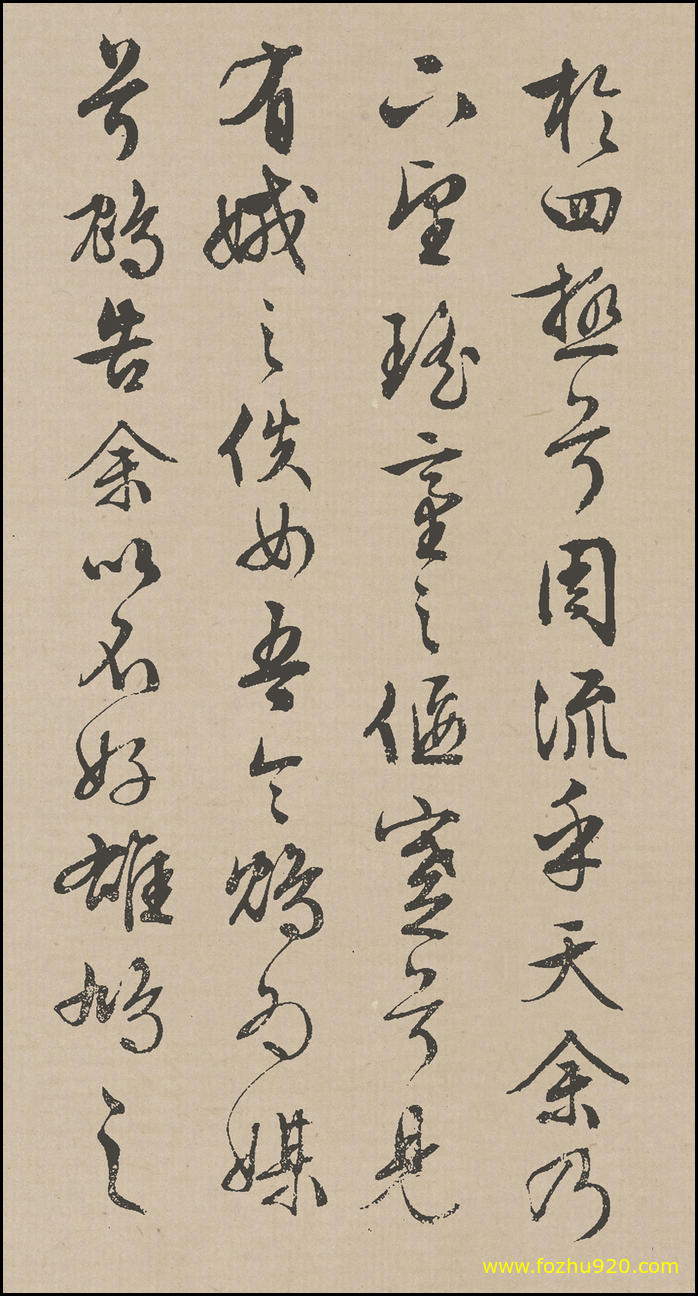 於四極兮周流乎天余乃
下望瑤臺之偃蹇兮見
有娀之佚女吾令鴆為媒
兮鴆告余以不好雄鳩之
www.fozhu920.com